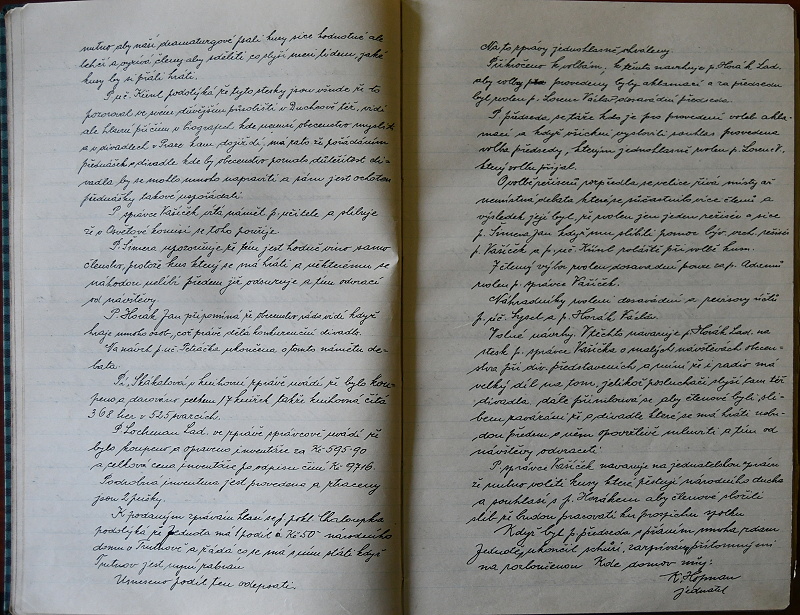 nutno aby naši dramaturgové psali kusy sice hodnotné ale
lehčí a vyzívá členy aby sdělili co slyší mezi lidem, jaké
kusy by si přáli hráti.
P. uč. Künl podotýká že tyto stesky jsou všude že to
pozoroval ve svém dřívějším působišti v Duchcově též, vidí
ale hlavní příčinu v biografech kde nemusí obecenstvo myslit
a v divadlech v Praze kam dojíždí, má za to že pořádáním
přednášek o divadle kde by obecenstvo poznalo důležitost di-
vadla by se mohlo mnoho napraviti a sám jest ochoten
přednášky takové uspořádati.
P. správce Vašíček vítá námět p. učitele a slibuje
že v Osvětové komisi se toho použije.
P. Šimera upozorňuje že tím jest hodně vinno samo
členstvo, protože kus který se má hráti a některému se
náhodou nelíbí předem již odsuzuje a tím odvrací
od návštěvy.
P. Horák Jan připomíná že obecenstvo rádo vidí když
hraje mnoho osob, což právě dělá konkurenční divadlo.
Na návrh p. uč. Petáčka ukončena o tomto námětu de-
bata.
Pí. Skákalová v knihovní zprávě uvádí že bylo kou-
peno a darováno celkem 17 knih takže knihovna čítá
368 her v 525 svazcích.
P. Lochman Lad. ve zprávě správcově uvádí že
bylo koupeno a opraveno inventáře za Kč 595·90
a celková cena inventáře po odpisu činí Kč 9716.
Podrobná inventura jest provedena a ztraceny
jsou 2 pušky.
K podaným zprávám hlásí se p. pokl. Chaloupka
podotýká že Jednota má 1 podíl à Kč 50 národního
domu v Trutnově a žádá co se má s ním státi když
Trutnov jest nyní zabrán.
Usneseno podíl ten odepsati.
Na to zprávy jednohlasně schváleny.
Přikročeno k volbám, k těmto navrhuje p. Horák Lad.
aby volby provedeny byly aklamací a za předsedu
byl zvolen p. Lorenc Václav, dosavadní předseda.
P. předseda se táže kdo je pro provedení voleb akla-
mací a když všichni vyslovili souhlas provedena
volba předsedy, kterým jednohlasně zvolen p. Lorenc V.
který volbu přijal.
O volbě režisérů rozpředla se velice živá místy až
nemístná debata které se súčastnilo více členů a
výsledek její byl, že zvolen jen jeden režisér a sice
p. Šimera Jan když mu slíbili pomoc býv. vrch. režisér
p. Vašíček a p. uč. Künl zvláště při volbě kusů.
Zčlený výbor zvolen dosavadní pouze za p. Adamů
zvolen p. správce Vašíček.
Náhradníky zvoleni dosavadní a revisory účtů
p. uč. Sysel a p. Horák Václav.
Volné návrhy. V těchto navazuje p. Horák Lad. na
stesk p. správce Vašíčka o malých návštěvách obecen-
stva při div. představeních a míní že i radio má
velký díl na tom, jelikož posluchači slyší tam též
divadla, dále přimlouvá se, aby členové byli sli-
bem zavázáni že o divadle které se má hráti nebu-
dou předem s ním opovržlivě mluviti a tím od
návštěvy odvraceti.
P. správce Vašíček navazuje na jednatelskou zprávu
že nutno voliti kusy které pěstují národního ducha
a souhlasí s p. Horákem aby členové složili
slib že budou pracovati ku prospěchu spolku.
Když byl p. předseda s přáním mnoha zdaru
Jednotě ukončil schůzi, zazpívány přítomnými
na rozloučenou Kde domov můj.
K. Hofman
jednatel